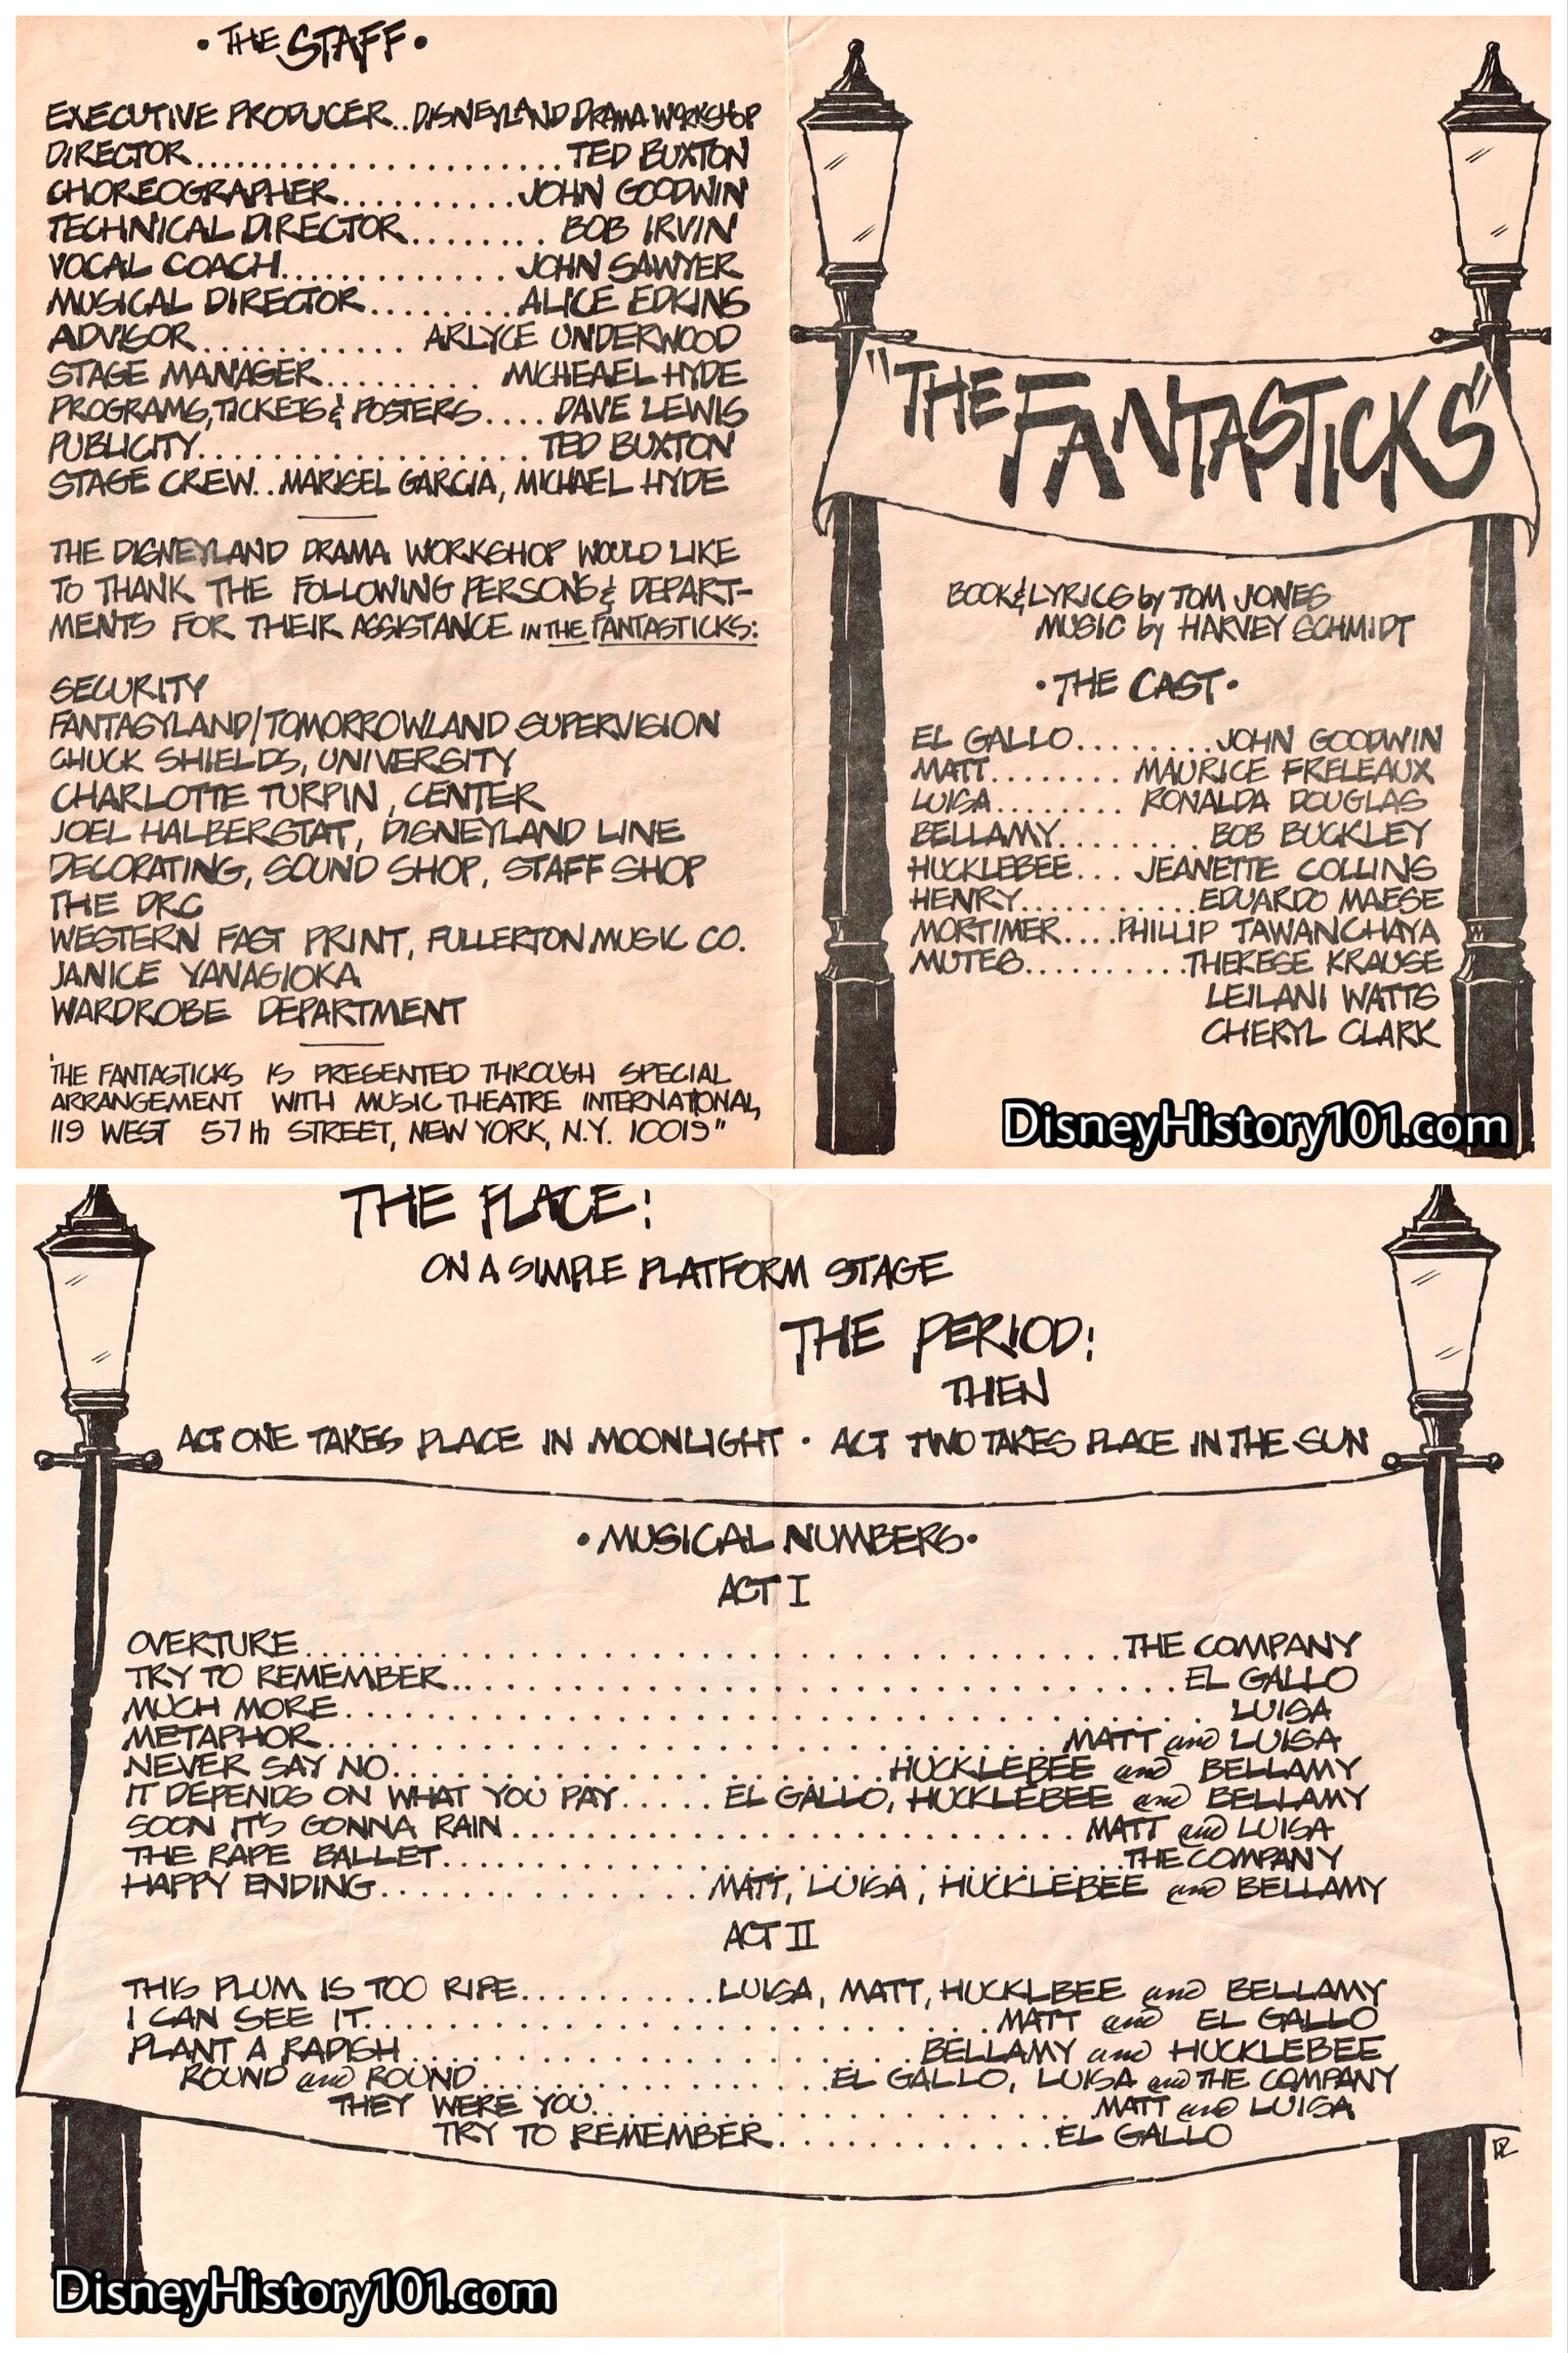 • THE STAFF •
EXECUTIVE PRODUCER..DISNEYLAND DRAMA WORKSHOP
DIRECTOR......................TED BUXTON
CHOREOGRAPHER..........JOHN GOODWIN
TECHNICAL DIRECTOR........BOB IRVIN
VOCAL COACH.............JOHN SAWYER
MUSICAL DIRECTOR.........ALICE EDKINS
ADVISOR............ARLYCE UNDERWOOD
STAGE MANAGER.........MICHEAEL HYDE
PROGRAMS, TICKETS & POSTERS....DAVE LEWIS
PUBLICITY..................TED BUXTON
STAGE CREW..MARISEL GARCIA, MICHAEL HYDE
THE DISNEYLAND DRAMA WORKSHOP WOULD LIKE
TO THANK THE FOLLOWING PERSONS & DEPART-
MENTS FOR THEIR ASSISTANCE IN THE FANTASTICKS:
SECURITY
FANTASYLAND/TOMORROWLAND SUPERVISION
CHUCK SHIELDS, UNIVERSITY
CHARLOTTE TURPIN, CENTER
JOEL HALBERSTAT, DISNEYLAND LINE
DECORATING, SOUND SHOP, STAFF SHOP
THE DRC
WESTERN FAST PRINT, FULLERTON MUSIC CO.
JANICE YANAGIOKA
WARDROBE DEPARTMENT
'THE FANTASTICKS IS PRESENTED THROUGH SPECIAL
ARRANGEMENT WITH MUSIC THEATRE INTERNATIONAL,
119 WEST 57th STREET, NEW YORK, N.Y. 10019"
"THE FANTASTICKS"
BOOK & LYRICS by TOM JONES
MUSIC by HARVEY SCHMIDT
• THE CAST •
EL GALLO........JOHN GOODWIN
MATT........MAURICE FRELEAUX
LUISA........RONALDA DOUGLAS
BELLAMY.........BOB BUCKLEY
HUCKLEBEE...JEANETTE COLLINS
HENRY...........EDUARDO MAESE
MORTIMER....PHILLIP TAWANCHAYA
MUTES..........THERESE KRAUSE
LEILANI WATTS
CHERYL CLARK
DisneyHistory101.com
THE PLACE:
ON A SIMPLE PLATFORM STAGE
THE PERIOD:
THEN
ACT ONE TAKES PLACE IN MOONLIGHT • ACT TWO TAKES PLACE IN THE SUN
• MUSICAL NUMBERS •
ACT I
OVERTURE........................................THE COMPANY
TRY TO REMEMBER........................................EL GALLO
MUCH MORE........................................LUISA
METAPHOR........................................MATT and LUISA
NEVER SAY NO..........................HUCKLEBEE and BELLAMY
IT DEPENDS ON WHAT YOU PAY.....EL GALLO, HUCKLEBEE and BELLAMY
SOON IT'S GONNA RAIN..............................MATT and LUISA
THE RAPE BALLET...................................THE COMPANY
HAPPY ENDING.................MATT, LUISA, HUCKLEBEE and BELLAMY
ACT II
THIS PLUM IS TOO RIPE..........LUISA, MATT, HUCKLBEE and BELLAMY
I CAN SEE IT..................................MATT and EL GALLO
PLANT A RADISH..........................BELLAMY and HUCKLEBEE
ROUND and ROUND..................EL GALLO, LUISA and THE COMPANY
THEY WERE YOU..........................MATT and LUISA
TRY TO REMEMBER.............EL GALLO
DisneyHistory101.com